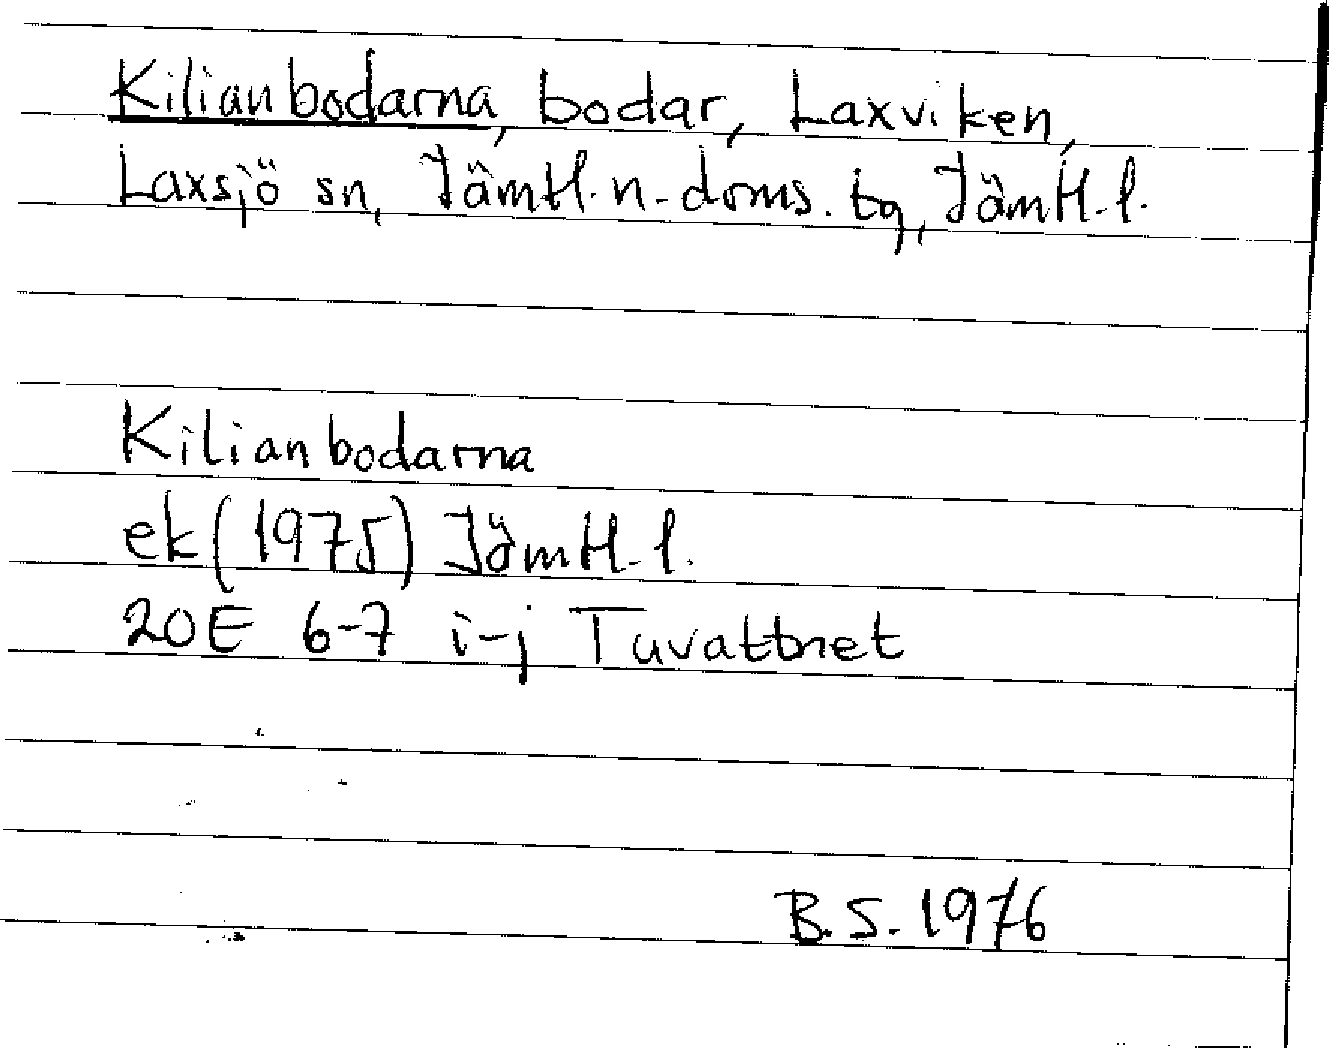 Kilianbodarna, bodar, Laxviken,
Laxsjö sn, Jämtl. n. doms. tg, Jämtl. l.
Kilianbodarna
ek (1975) Jämtl. l.
20E 6-7 i-j Tuvattnet
B.S. 1976